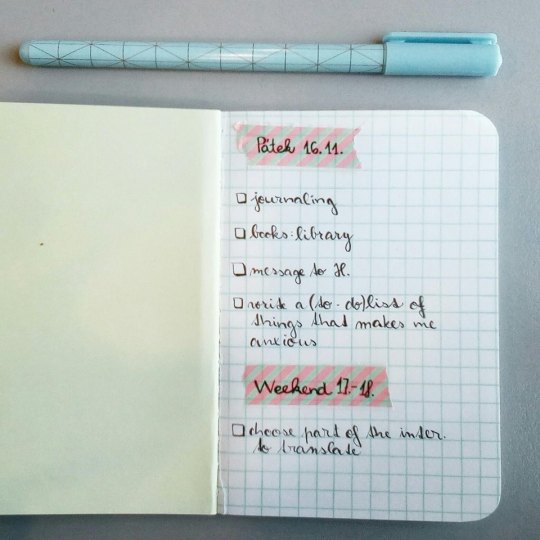 Pátek 16.11.
journaling
books: library
message to H.
write a (to-do) list of
things that makes me
anxious
Weekend 17.-18.
choose part of the inter.
to translate